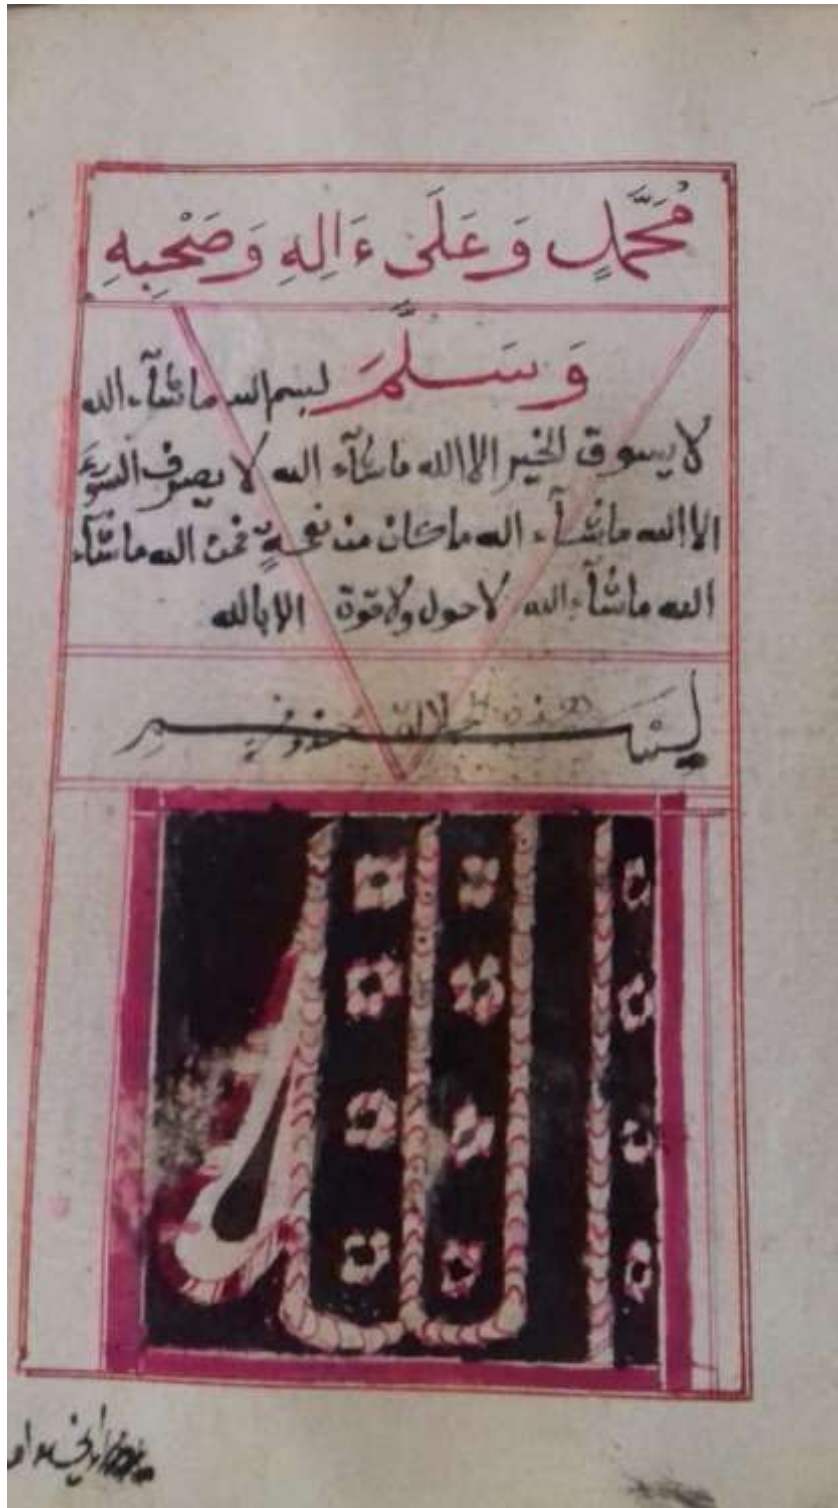 مُحَمَّدٍ وَعَلَى ءَالِهِ وَصَحْبِهِ
وَسَلَّمَ بسم الله ما شآء الله
لا يسوق الخير الا الله ما شآء الله لا يصرف السوء
الا الله ما شآء الله ما كان من نعمةٍ فمن الله ما شآء
الله ما شآء الله لا حول ولا قوة الا بالله